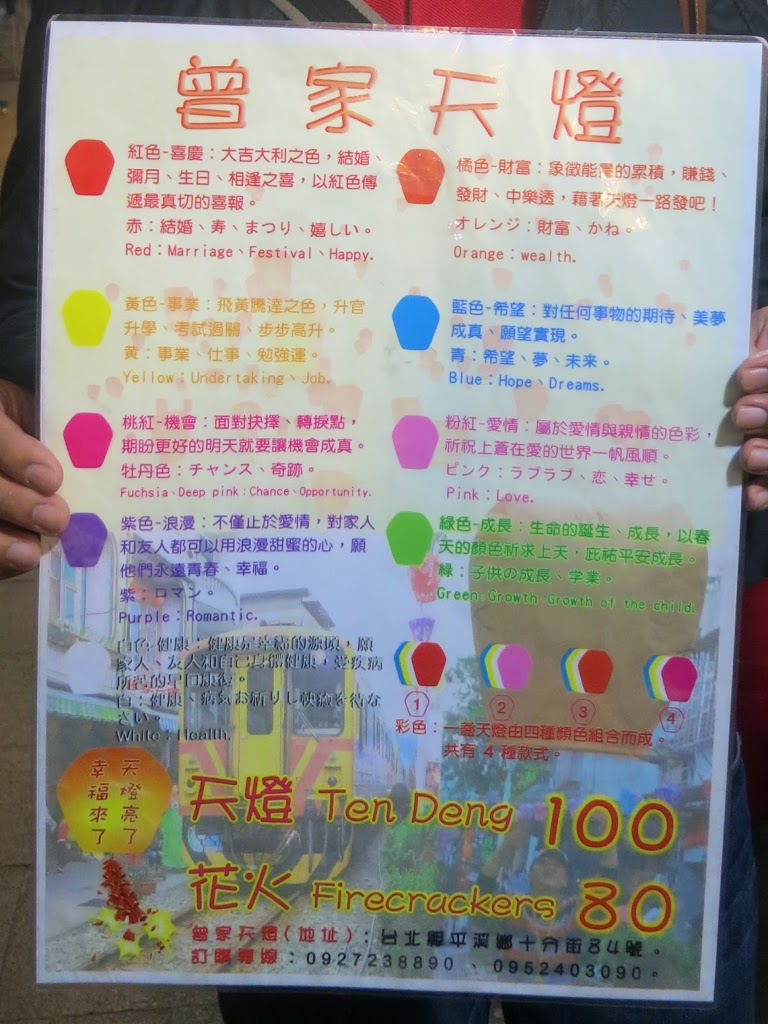 曾家天燈
紅色-喜慶：大吉大利之色，結婚、
彌月、生日、相逢之喜，以紅色傳
遞最真切的喜報。
赤：結婚、寿、まつり、嬉しい。
Red：Marriage、Festival、Happy.
橘色-財富：象徵能量的累積，賺錢、
發財、中樂透，藉著天燈一路發吧！
オレンジ：財富、かね。
Orange：wealth.
黃色-事業：飛黃騰達之色，升官
升學、考試過關、步步高升。
黄：事業、仕事、勉強運。
Yellow：Undertaking、Job.
藍色-希望：對任何事物的期待、美夢
成真、願望實現。
青：希望、夢、未来。
Blue：Hope、Dreams.
桃紅-機會：面對抉擇、轉捩點，
期盼更好的明天就要讓機會成真。
牡丹色：チャンス、奇跡。
Fuchsia、Deep pink：Chance、Opportunity.
粉紅-愛情：屬於愛情與親情的色彩，
祈祝上蒼在愛的世界一帆風順。
ピンク：ラブラブ、恋、幸せ。
Pink：Love.
紫色-浪漫：不僅止於愛情，對家人
和友人都可以用浪漫甜蜜的心，願
他們永遠青春、幸福。
紫：ロマン。
Purple：Romantic.
綠色-成長：生命的誕生、成長，以春
天的顏色祈求上天，庇祐平安成長。
緑：子供の成長、学業。
Green:Growth、Growth of the child.
白色-健康：健康是幸福的源頭，願
家人、友人和自己身體健康，受疾病
所苦的早日康復。
白：健康、病気お祈りし快癒を待な
さい。
White：Health.
1 2 3 4
彩色：一盞天燈由四種顏色組合而成。
共有 4 種款式。
天燈亮了
幸福來了
天燈 Ten Deng 100
花火 Firecrackers 80
曾家天燈(地址)：台北縣平溪鄉十分街84號。
訂購專線：0927238890 、0952403090。